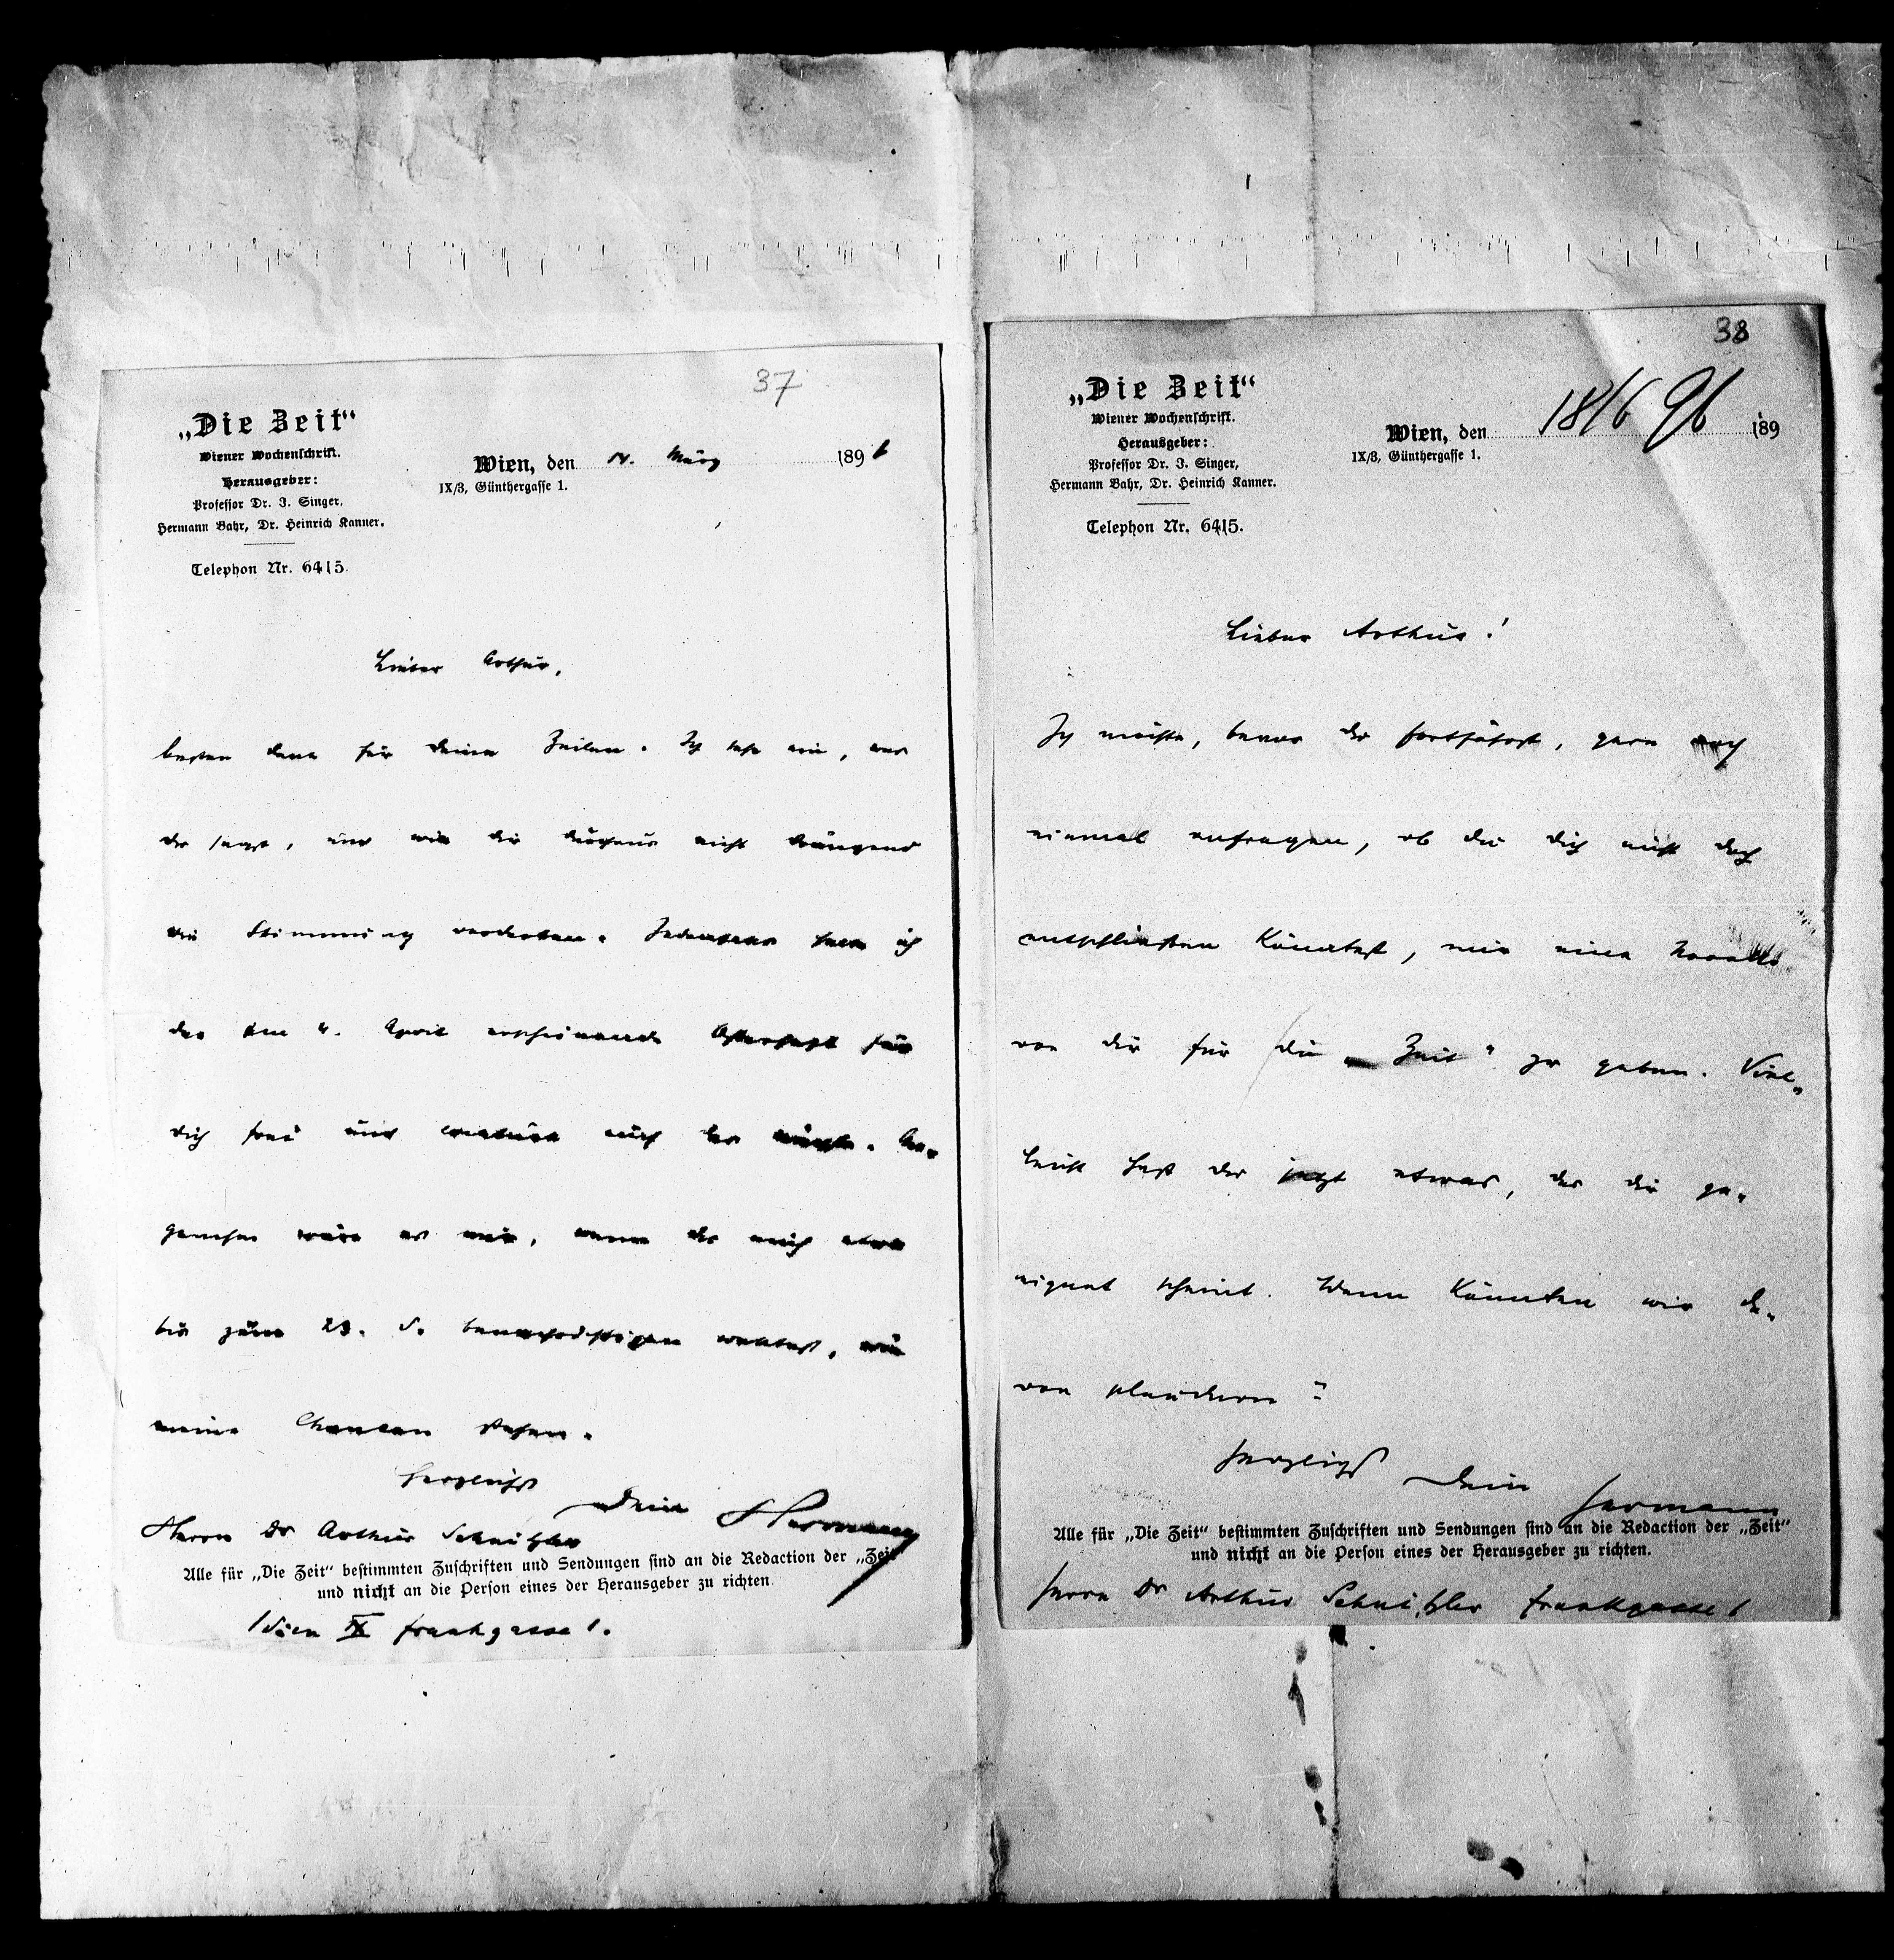 37
„Die Zeit“
Wiener Wochenschrift.
Herausgeber:
Professor Dr. J. Singer,
Hermann Bahr, Dr. Heinrich Kanner.
Telephon Nr. 6415.
Wien, den 14. März 1896
IX/3, Günthergasse 1.
Lieber Arthur,
besten Dank für Deine Zeilen. Ich sehe ein, was
Du sagst, und will Dir durchaus nicht drängend
die Stimmung verderben. Jedenfalls halte ich
das am 4. April erscheinende Osterheft für
Dich frei und
genehm wäre es mir, wenn Du mich etwa
bis zum 23. d. benachrichtigen wolltest, wie
meine Chancen stehen.
Herzlichst
Dein Hermann
Herrn Dr Arthur Schnitzler
Alle für „Die Zeit“ bestimmten Zuschriften und Sendungen sind an die Redaction der „Zeit“
und nicht an die Person eines der Herausgeber zu richten.
Wien IX Frankgasse 1.
38
„Die Zeit“
Wiener Wochenschrift.
Herausgeber:
Professor Dr. J. Singer,
Hermann Bahr, Dr. Heinrich Kanner.
Telephon Nr. 6415.
Wien, den 18/6 96 189
IX/3, Günthergasse 1.
Lieber Arthur!
Ich möchte, bevor Du fortfährst, gern noch
einmal anfragen, ob Du Dich nicht doch
entschließen könntest, mir eine Novelle
von Dir für die „Zeit“ zu geben. Viel-
leicht hast Du jetzt etwas, das Dir ge-
eignet scheint. Wann könnten wir da-
von plaudern?
Herzlichst
Dein Hermann
Alle für „Die Zeit“ bestimmten Zuschriften und Sendungen sind an die Redaction der „Zeit“
und nicht an die Person eines der Herausgeber zu richten.
Herrn Dr Arthur Schnitzler Frankgasse 1